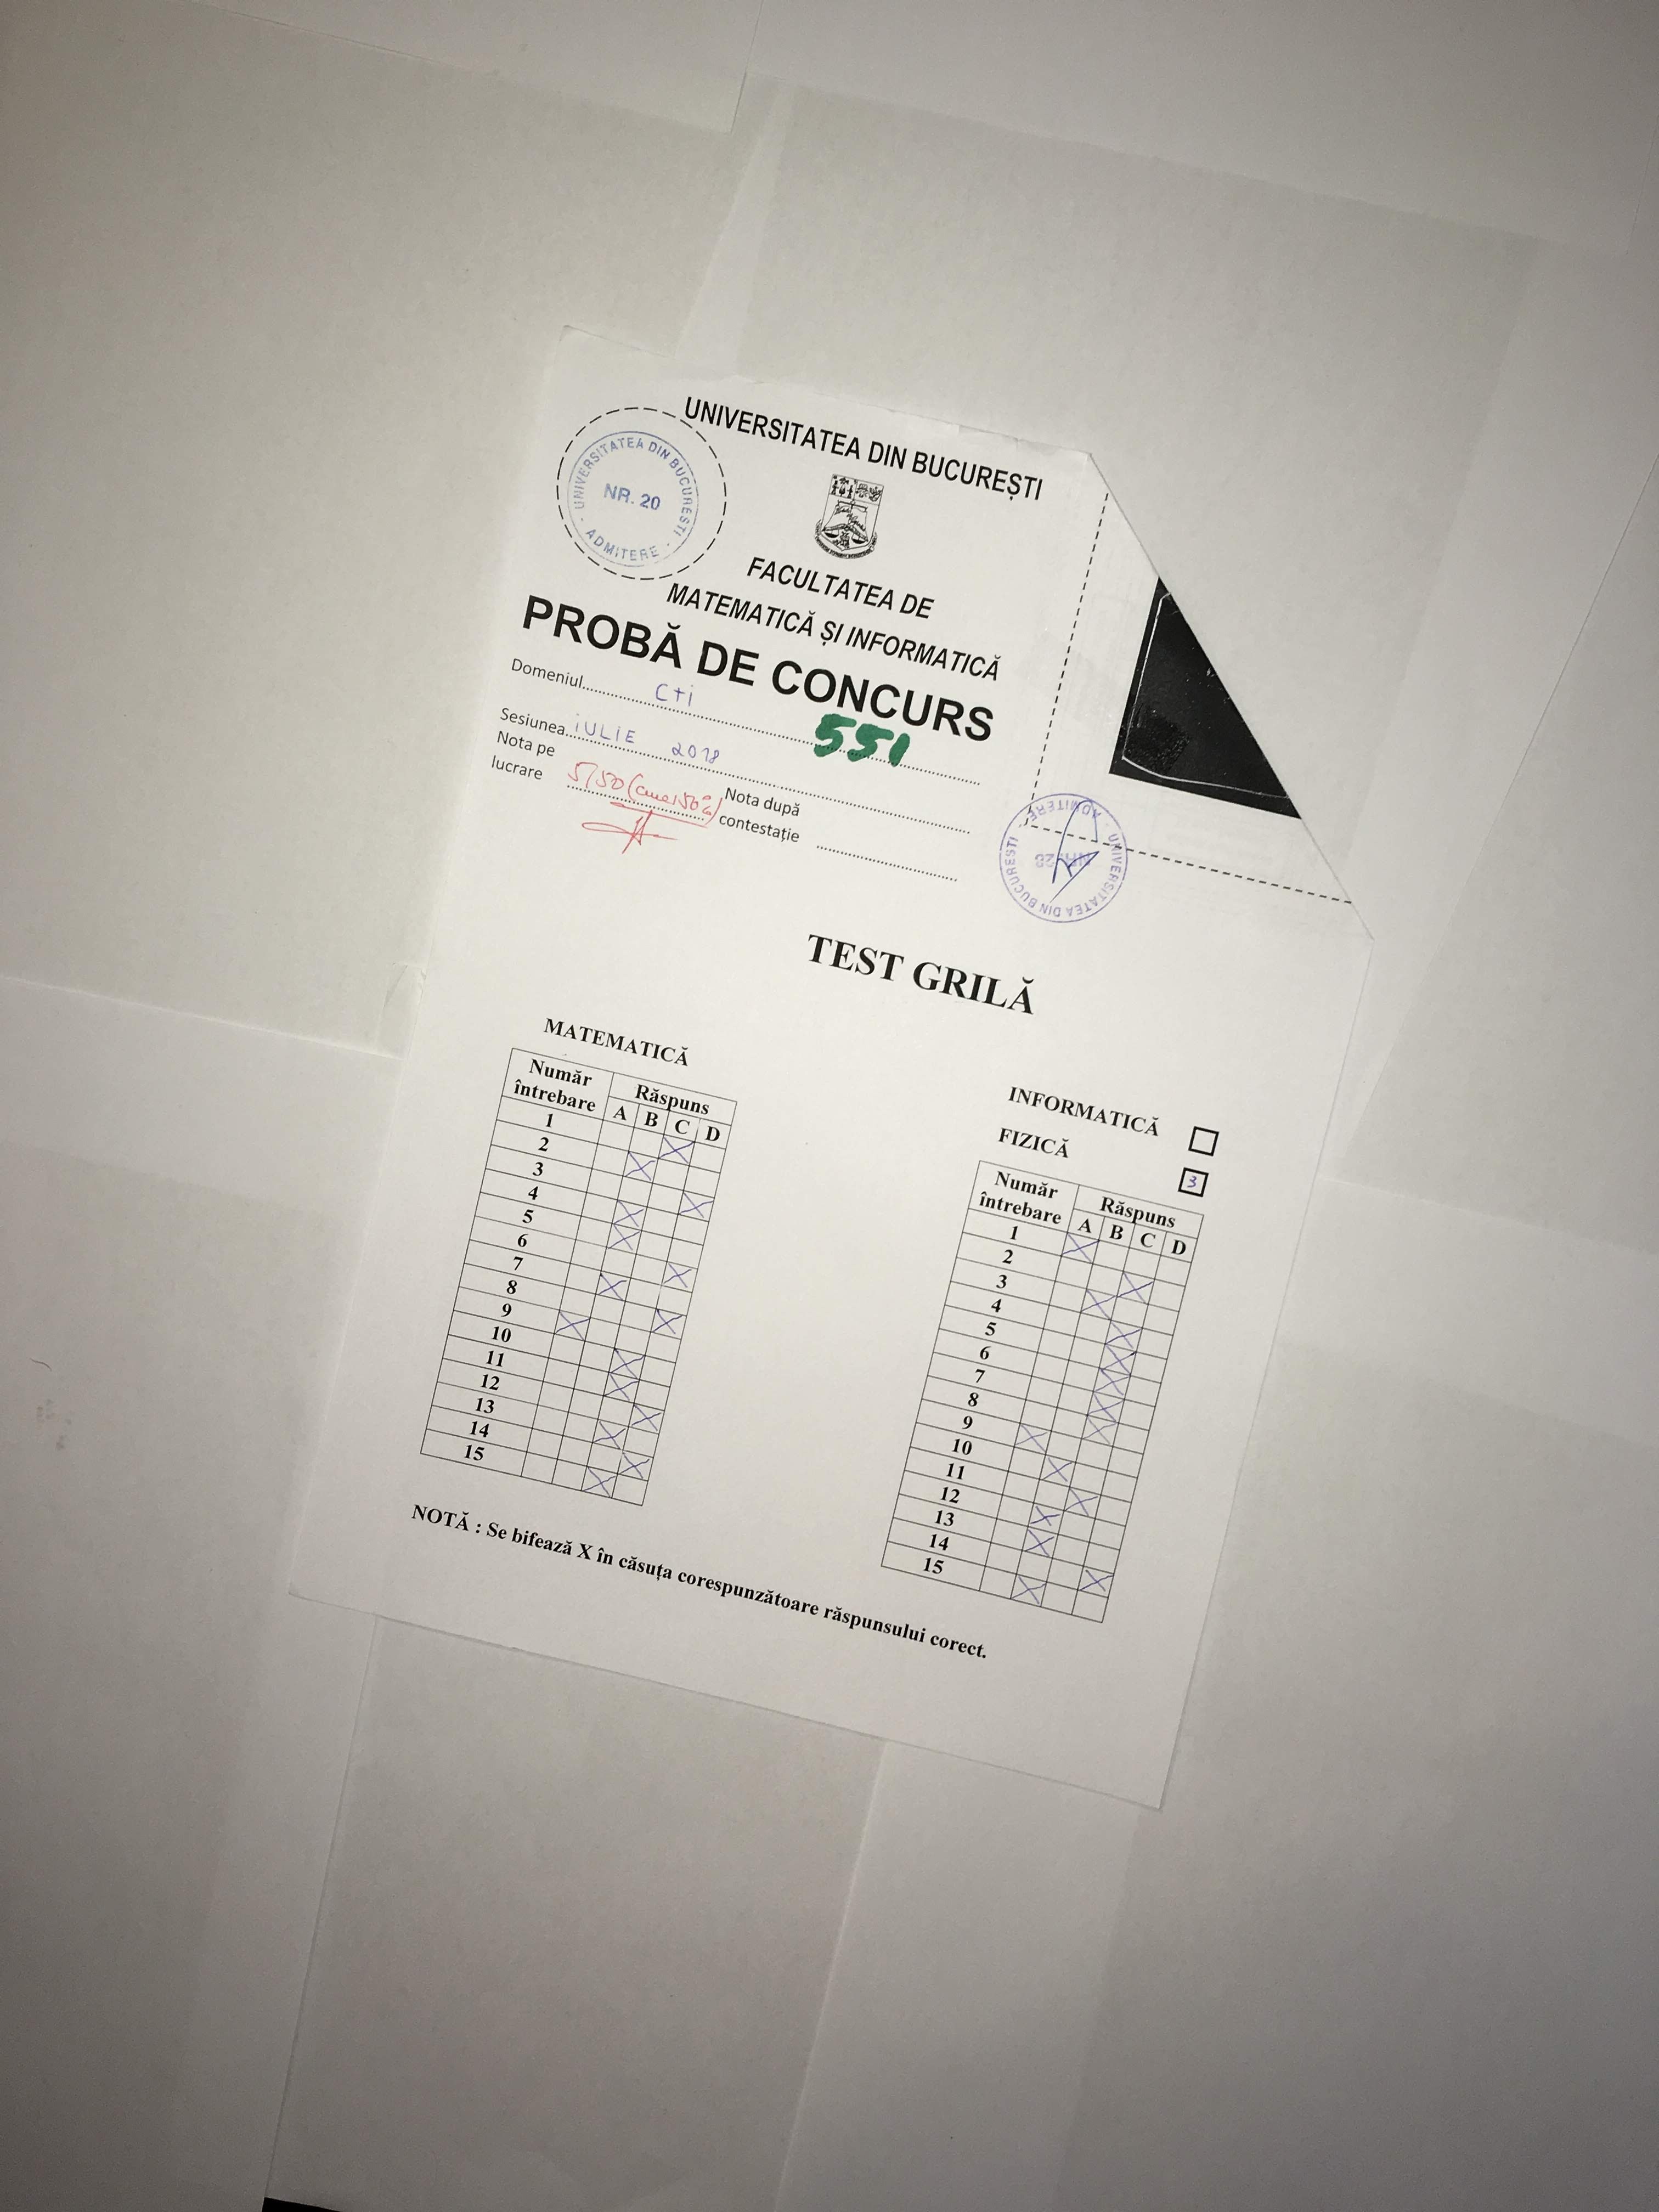 UNIVERSITATEA DIN BUCUREȘTI
UNIVERSITATEA DIN BUCURESTI
NR. 20
ADMITERE
FACULTATEA DE
MATEMATICĂ ȘI INFORMATICĂ
PROBĂ DE CONCURS
Domeniul CTi
551
Sesiunea iULIE 2018
Nota pe
lucrare 5,50 (cinci 50%)
Nota după
contestație
UNIVERSITATEA DIN BUCURESTI
ADMITERE
TEST GRILĂ
MATEMATICĂ
Număr
întrebare
Răspuns
A B C D
1
2
3
4
5
6
7
8
9
10
11
12
13
14
15
INFORMATICĂ
FIZICĂ 3
Număr
întrebare
Răspuns
A B C D
1
2
3
4
5
6
7
8
9
10
11
12
13
14
15
NOTĂ : Se bifează X în căsuța corespunzătoare răspunsului corect.